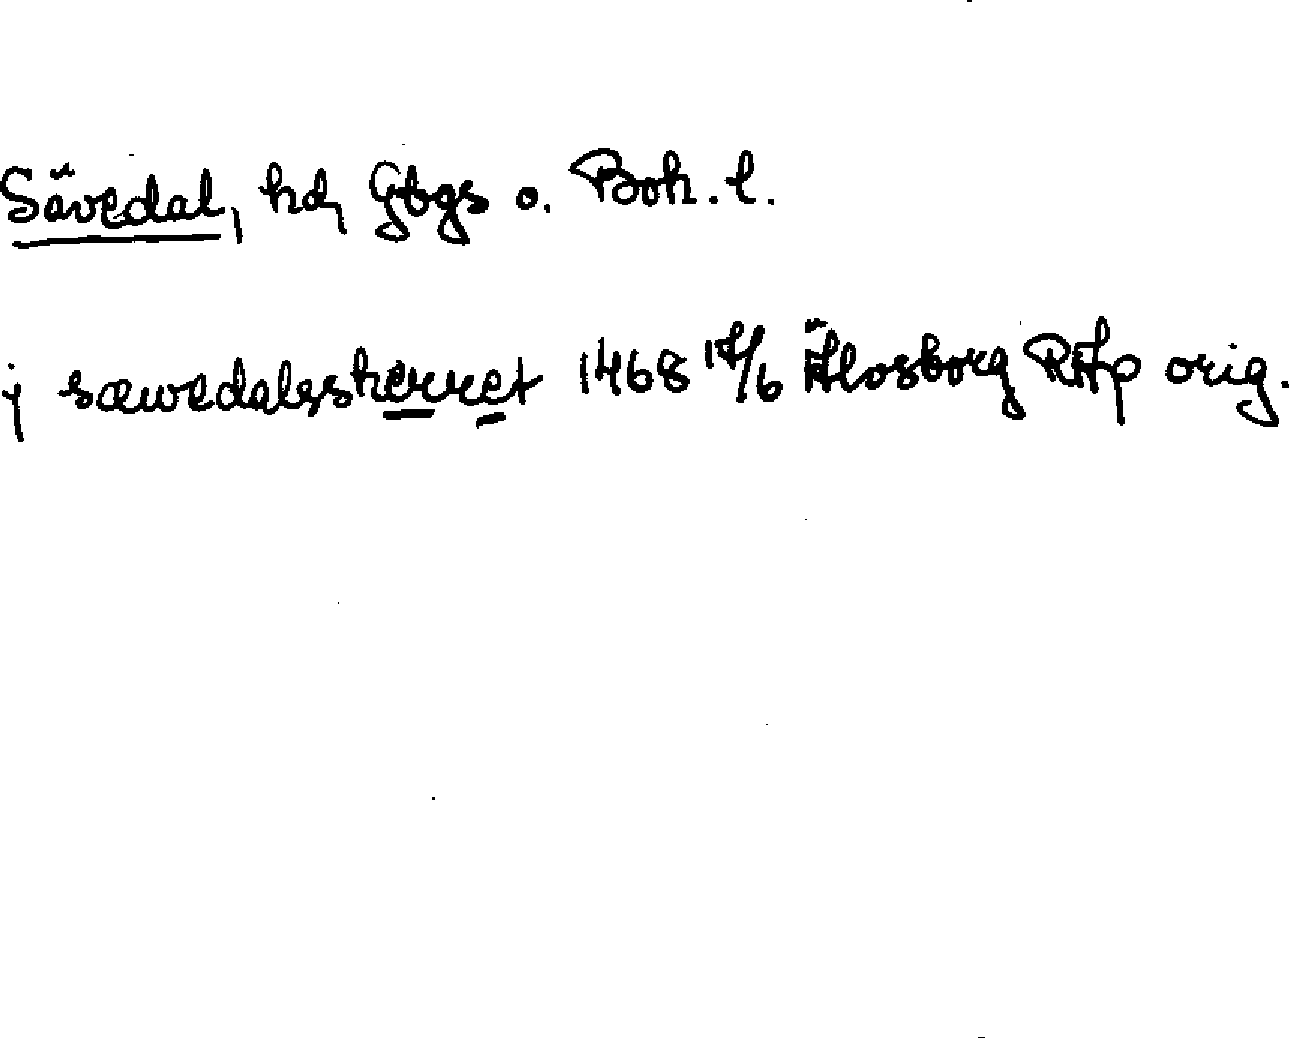 Sävedal, hd, Gbgs o. Boh. l.
j sæwedalssherret 1468 17/6 Älvsborg RAp orig.